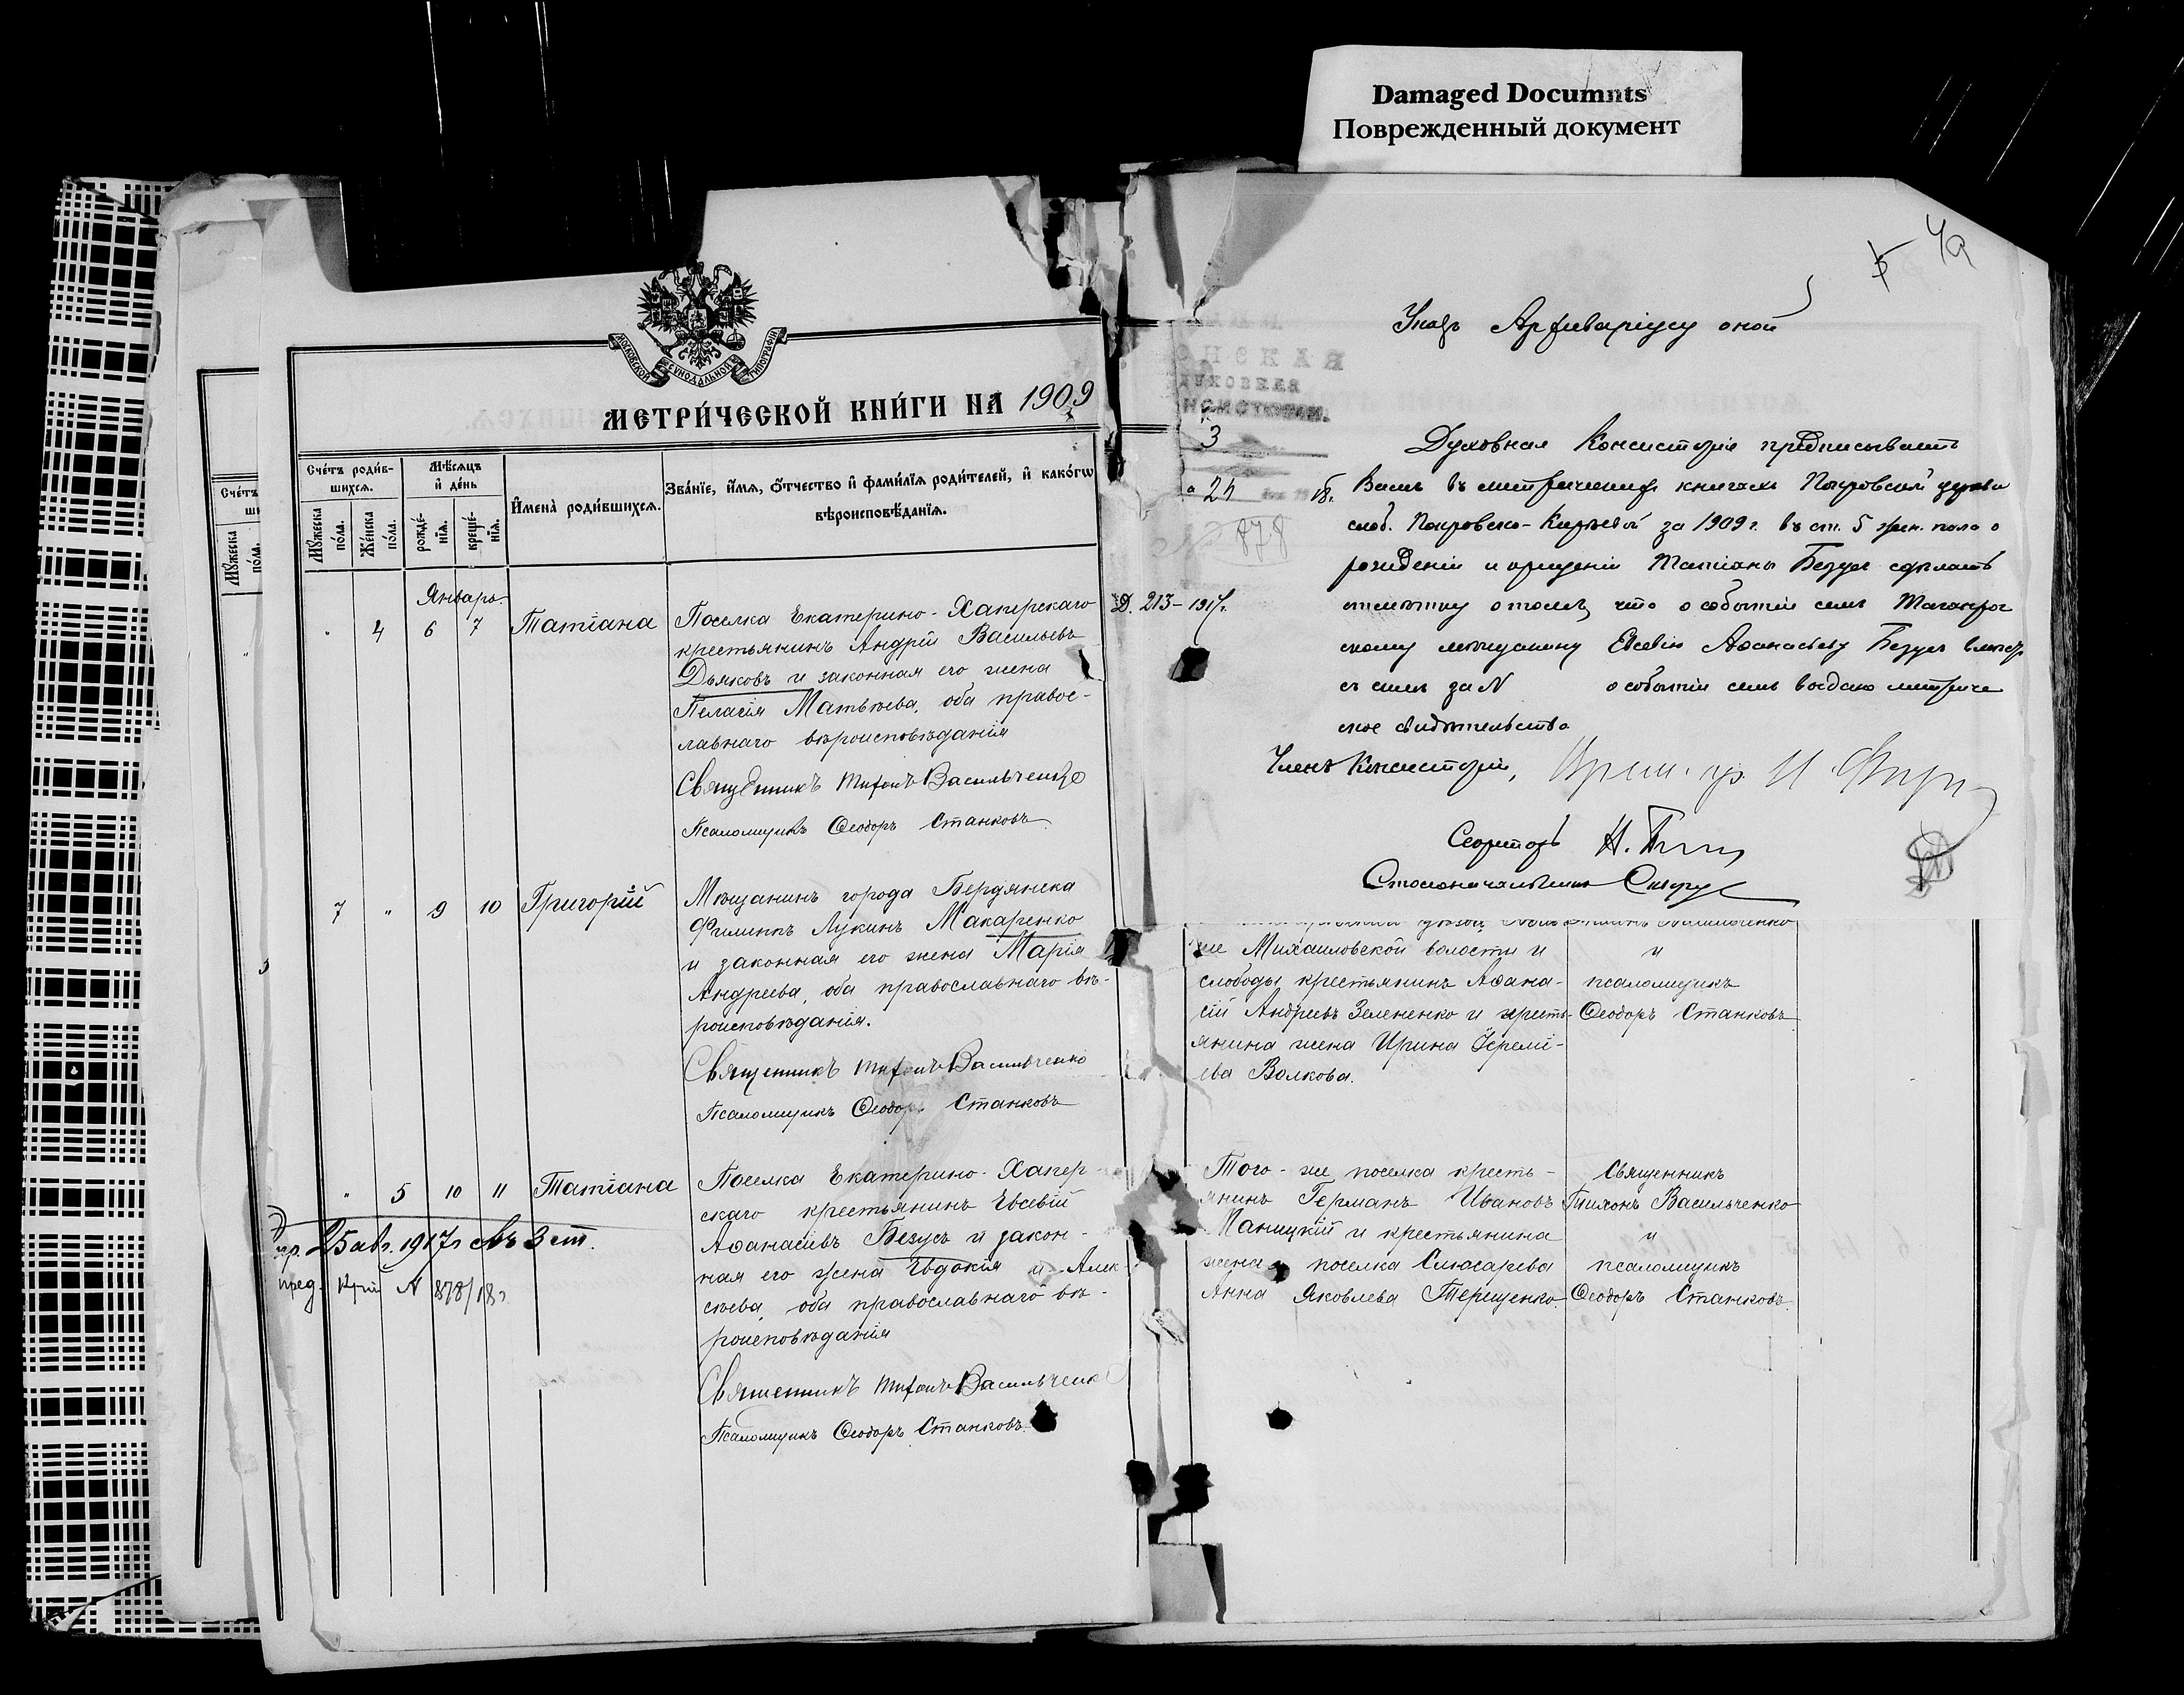 Damaged Documnts
Поврежденный документ
4а
МОСКОВСКОЙ СѴНОДАЛЬНОЙ ТИПОГРАФІИ
МЕТРИ́ЧЕСКОЙ КНИ́ГИ НА 1909
Сче́тъ роди́в-
шихсѧ.
Мѣ́сѧцъ
и҆ де́нь
Мꙋ́жеска
по́ла.
Же́нска
по́ла.
рожде́-
нїѧ.
креще́-
нїѧ.
И҆мена̀ роди́вшихсѧ.
Зва́нїе, и҆́мѧ, ѻ҆́тчество и҆ фами́лїѧ роди́телей, и҆ како́гѡ
вѣроисповѣ́данїѧ.
Январь.
" 4 6 7 Татіана
Поселка Екатерино-Хаперскаго
крестьянинъ Андрей Васильевъ
Дьяковъ и законная его жена
Пелагія Матвѣева, оба правос-
лавнаго вѣроисповѣданія
Священникъ Тихонъ Васильченко
Псаломщикъ Ѳеодоръ Станковъ
7 " 9 10 Григорій
Мѣщанинъ города Бердянска
Филиппъ Лукинъ Макаренко
и законная его жена Марія
Андреева, оба православнаго вѣ-
роисповѣданія.
Священникъ Тихонъ Васильченко
Псаломщикъ Ѳеодоръ Станковъ
" 5 10 11 Татіана
Поселка Екатерино-Хапер-
скаго крестьянинъ Евсевій
Аѳанасіевъ Безусъ и закон-
ная его жена Евдокія Алек-
сѣева, оба православнаго вѣ-
роисповѣданія
Священникъ Тихонъ Васильченко
Псаломщикъ Ѳеодоръ Станковъ.
25 авг. 1917 г 3 ст.
пред. 878/18 г
Д. 213-1917г.
ДУХОВНАЯ
КОНСИСТОРІЯ.
3
24
18.
878
Указъ Архиваріусу оной
Духовная Консисторія предписываетъ
Вамъ въ метрическихъ книгахъ Покровской церкви
слоб. Покровско-Кирѣевой за 1909 г. въ ст. 5 жен. пола о
рожденіи и крещеніи Татіаны Безусъ сдѣлать
отмѣтку о томъ, что о событіи семъ Таганрог
скому мѣщанину Евсевію Аѳанасьеву Безусъ вмѣстѣ
съ симъ за N о событіи семъ выдано метриче
ское свидѣтельство
Членъ Консисторіи,
Секретарь
Столоначальникъ
же Михаиловской волости и
слободы крестьянинъ Аѳана-
сій Андреевъ Зелененко и кресть-
янина жена Ирина Іереміе-
ева Волкова.
и
псаломщикъ
Ѳеодоръ Станковъ
Того-же поселка кресть-
янинъ Германъ Ивановъ
Паницкій и крестьянина
жена поселка Слюсарева
Анна Яковлева Терещенко.
Священникъ
Тихонъ Васильченко
и
псаломщикъ
Ѳеодоръ Станковъ.